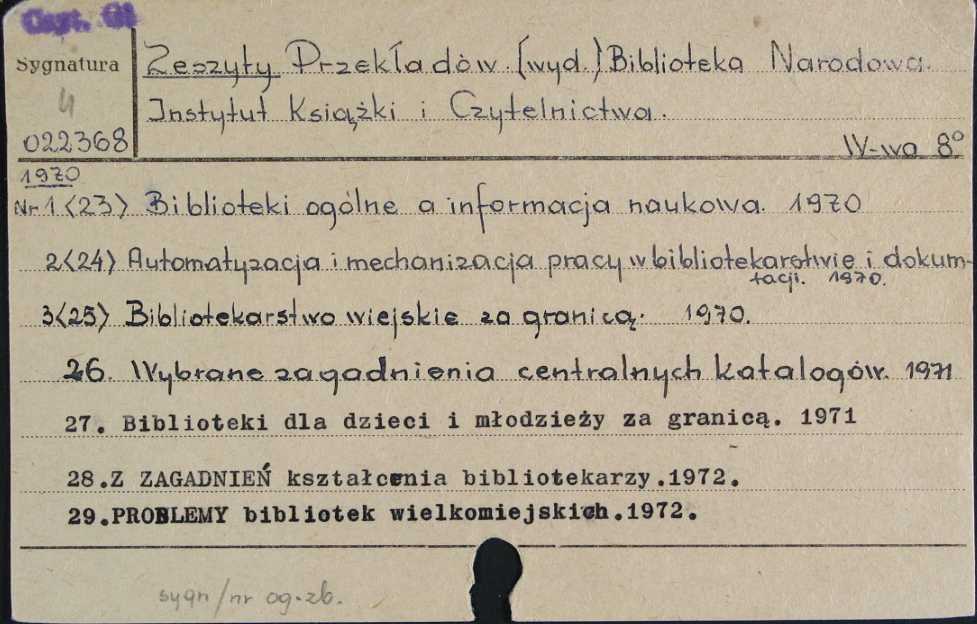 Czyt. Gł
Sygnatura
4
022368
Zeszyty Przekładów. [wyd.] Biblioteka Narodowa.
Instytut Książki i Czytelnictwa.
W-wa 8°
1970
Nr 1<23> Biblioteki ogólne a informacja naukowa. 1970
2<24> Automatyzacja i mechanizacja pracy w bibliotekarstwie i dokum-
tacji. 1970.
3<25> Bibliotekarstwo wiejskie za granicą. 1970.
26. Wybrane zagadnienia centralnych katalogów. 1971
27. Biblioteki dla dzieci i młodzieży za granicą. 1971
28.Z ZAGADNIEŃ kształcenia bibliotekarzy.1972.
29.PROBLEMY bibliotek wielkomiejskich.1972.
sygn/nr og.zb.